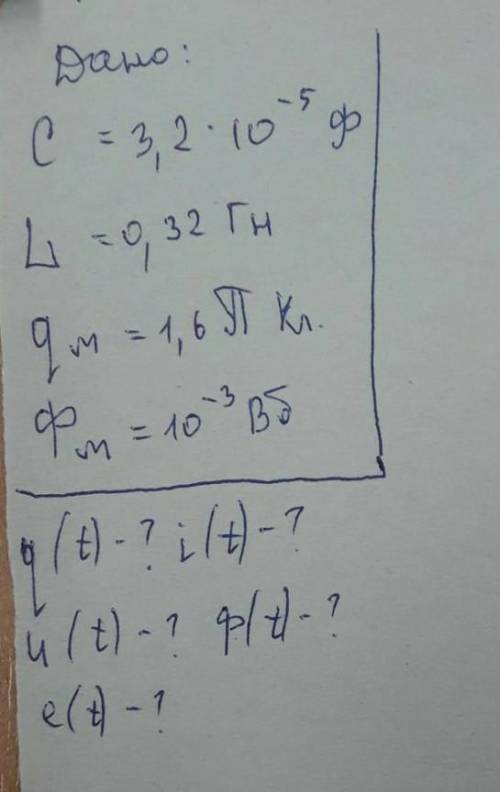 Дано:
C = 3,2 · 10⁻⁵ Ф
L = 0,32 Гн
qм = 1,6 П Кл.
Фм = 10⁻³ Вб
q(t) - ? i(t) - ?
u(t) - ? ф(t) - ?
e(t) - ?